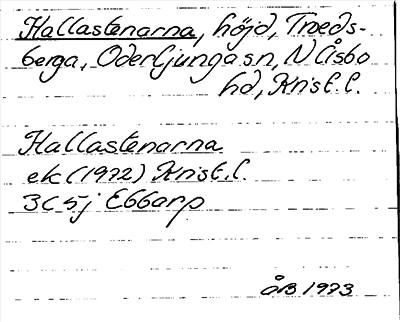 Hallastenarna, höjd, Troeds-
berga, Oderljunga sn, N Åsbo
hd, Krist. l.
Hallastenarna
ek (1972) Krist. l.
3C 5j Ebbarp
ÅB 1973